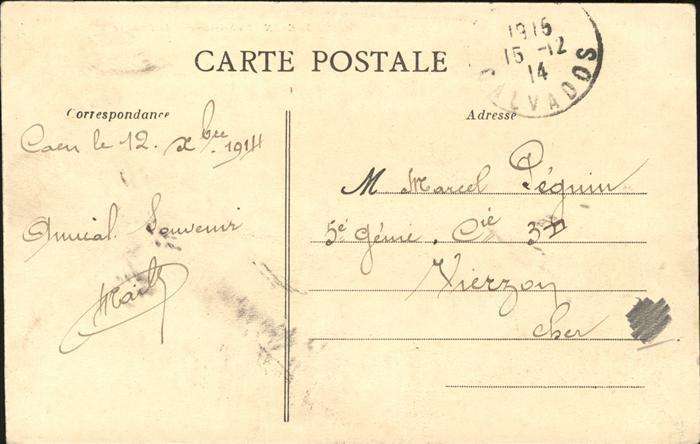 CARTE POSTALE
1915
15 -12
14
CALVADOS
Correspondance
Caen le 12 Xbre 1914
Amical Souvenir
Adresse
M Marcel Péguin
5e Génie. Cie
Vierzon
Cher